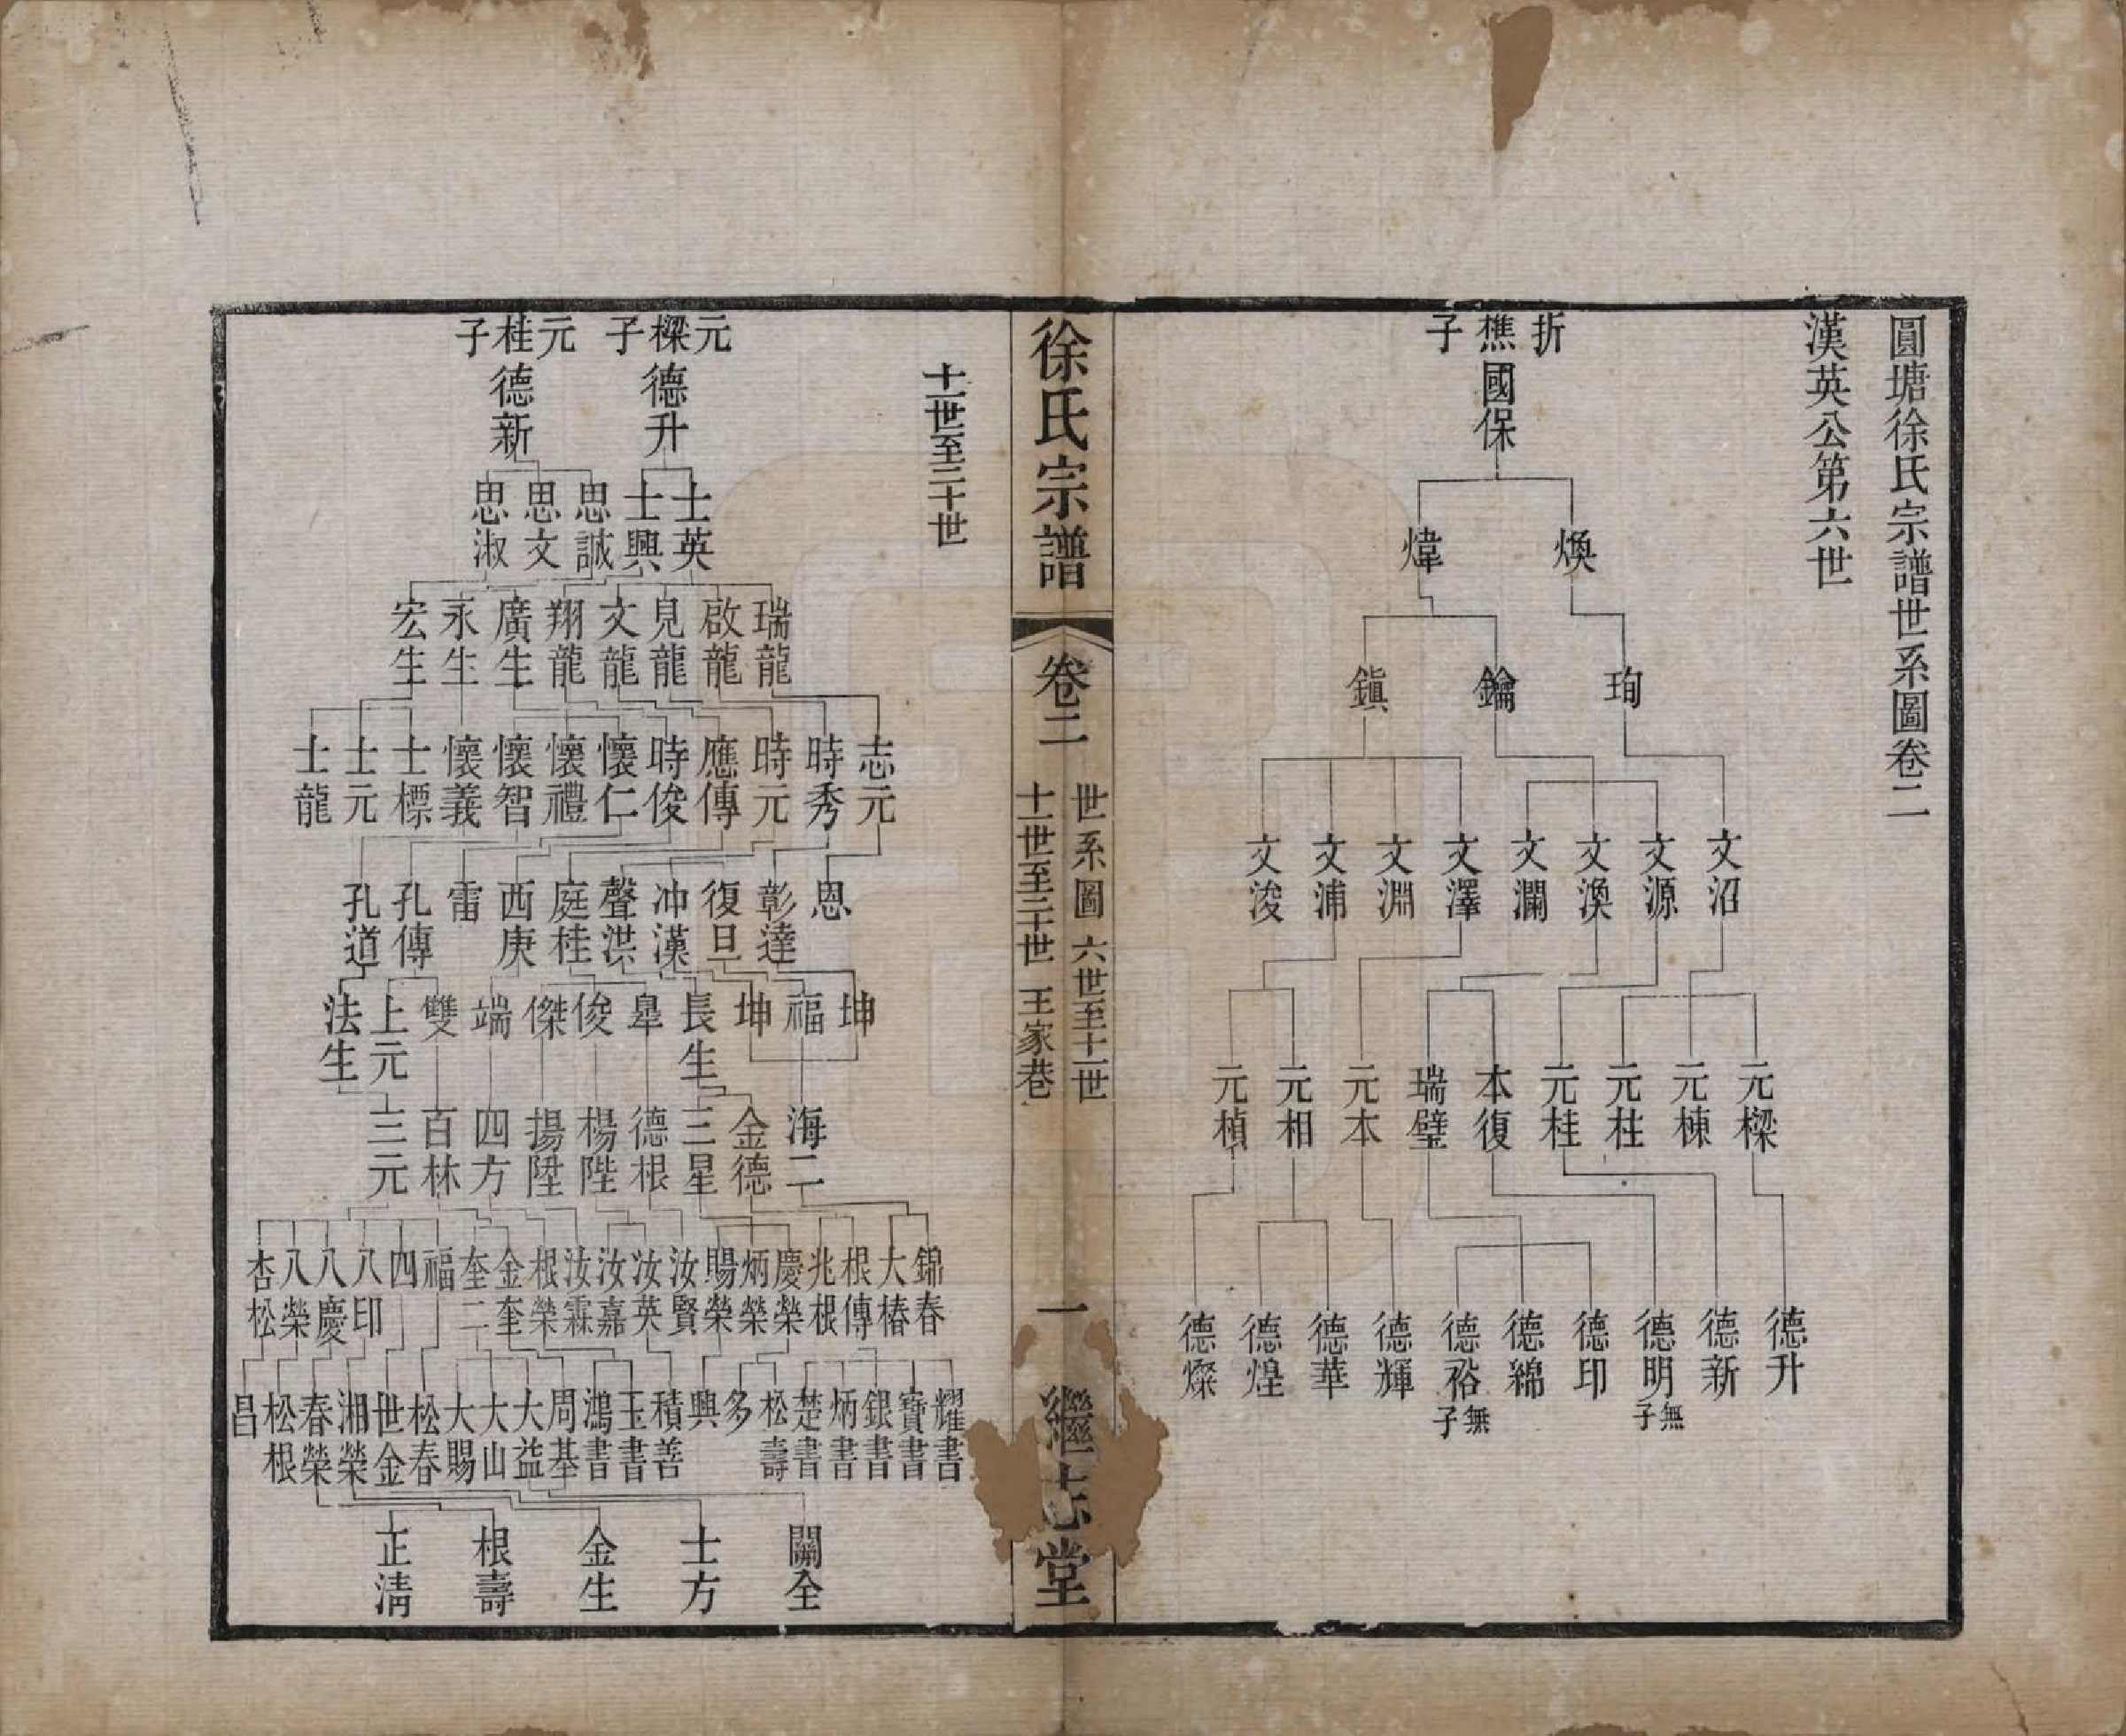 圓塘徐氏宗譜世系圖卷二
漢英公第六世
折樵子
國保
煥 煒
珣 鑰 鎮
文沼 文源 文渙 文瀾 文澤 文淵 文浦 文浚
元樑 元棟 元柱 元桂 本復 瑞璧 元本 元相 元楨
德升 德新 德明 無子 德印 德綿 德裕 無子 德輝 德華 德煌 德燦
徐氏宗譜
卷二
世系圖 六世至十一世
十一世至二十世 王家巷
一
繼志堂
十一世至二十世
元樑子 元桂子
德升 德新
士英 士興 思誠 思文 思淑
瑞龍 啟龍 見龍 文龍 翔龍 廣生 永生 宏生
志元 時秀 時元 應傳 時俊 懷仁 懷禮 懷智 懷義 士標 士元 士龍
恩 彰達 復旦 冲漢 聲洪 庭桂 西庚 雷 孔傳 孔道
坤 福 坤 長生 臯 俊 傑 端 雙 上元 法生
海二 金德 三星 德根 楊陛 揚陞 四方 百林 三元
錦春 大椿 根傳 兆根 慶榮 炳榮 賜榮 汝賢 汝英 汝嘉 汝霖 根榮 金奎 奎二 福 四 八印 八慶 八榮 杏松
耀書 寶書 銀書 炳書 楚書 松壽 多 興 積善 玉書 鴻書 周基 大益 大山 大賜 松春 世金 湘榮 春榮 松根 昌
關全 士方 金生 根壽 正淸